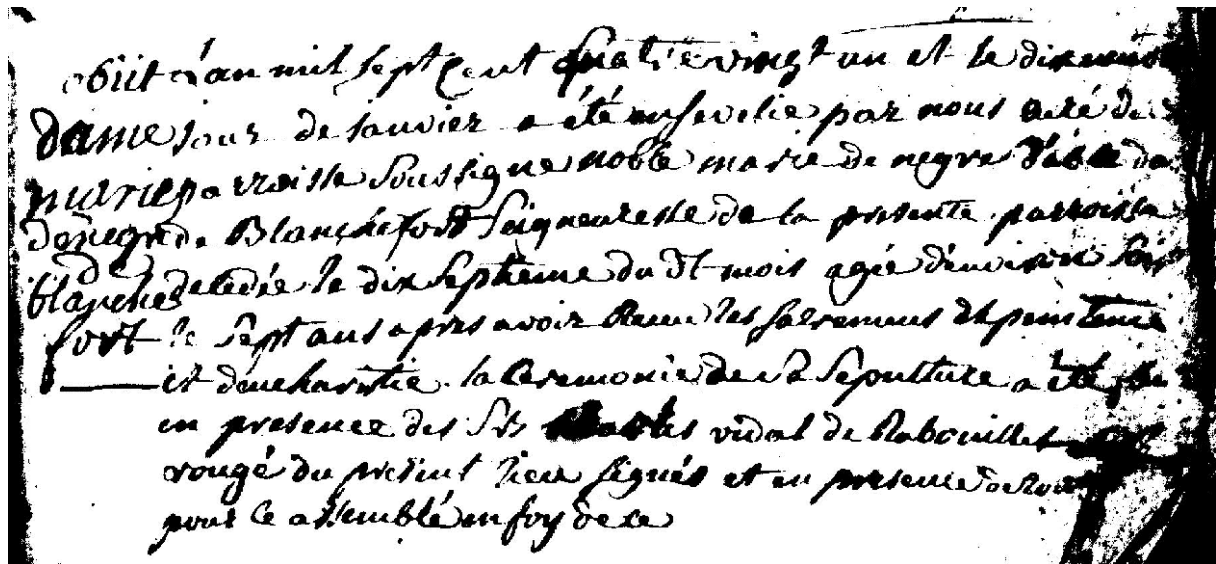 obiit L'an mil sept cent quatre vingt un et le dix neuv
dame jour de janvier a été ensevelie par nous curé de
marie parroisse soussigné noble marie de negre d'able da
de negre de Blanchefort seigneuresse de la presente parroisse
de
blanche decedée le dix septieme du dt mois agée d'environ soix
fort te sept ans apres avoir Reçeu les sacremens de penitence
et d'eucharistie. la Ceremonie de sa sepulture a été
en presence des Srs vidal de Rabouillet
rougé du present lieu signés et en presence de
pour ce assemblé en foy de ce